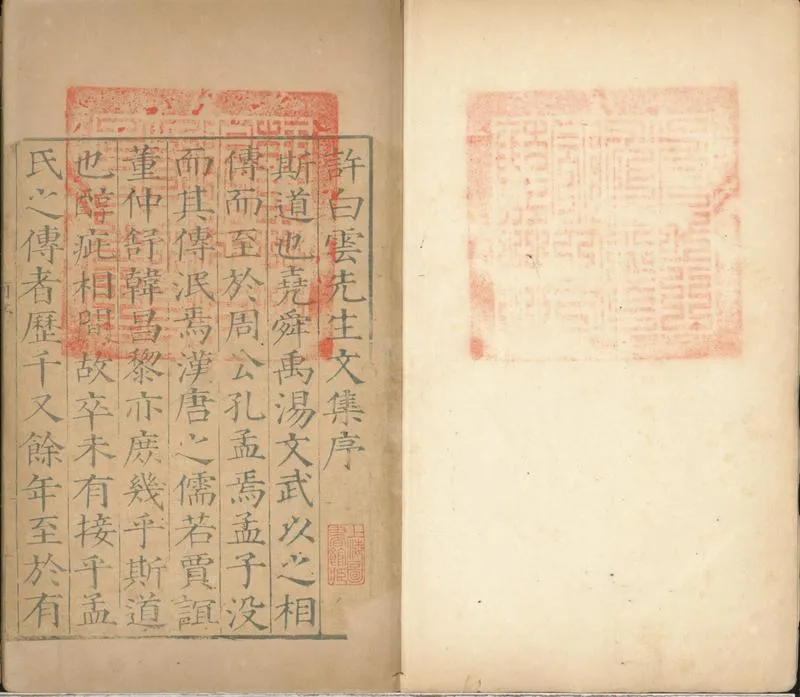 許白雲先生文集序
斯道也堯舜禹湯文武以之相
傳而至於周公孔孟焉孟子没
而其傳泯焉漢唐之儒若賈誼
董仲舒韓昌黎亦庶幾乎斯道
也醇疵相間故卒未有接乎孟
氏之傳者歷千又餘年至於有
上海圖
書館藏